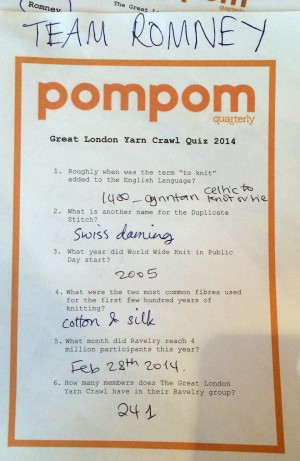 Romney
The Great L
TEAM ROMNEY
pompom
quarterly
Great London Yarn Crawl Quiz 2014
1. Roughly when was the term "to knit"
added to the English Language?
1400 - cynntan celtic to
knot or tie
2. What is another name for the Duplicate
Stitch?
Swiss darning
3. What year did World Wide Knit in Public
Day start?
2005
4. What were the two most common fibres used
for the first few hundred years of
knitting?
cotton & silk
5. What month did Ravelry reach 4
million participants this year?
Feb 28th 2014.
6. How many members does The Great London
Yarn Crawl have in their Ravelry group?
241